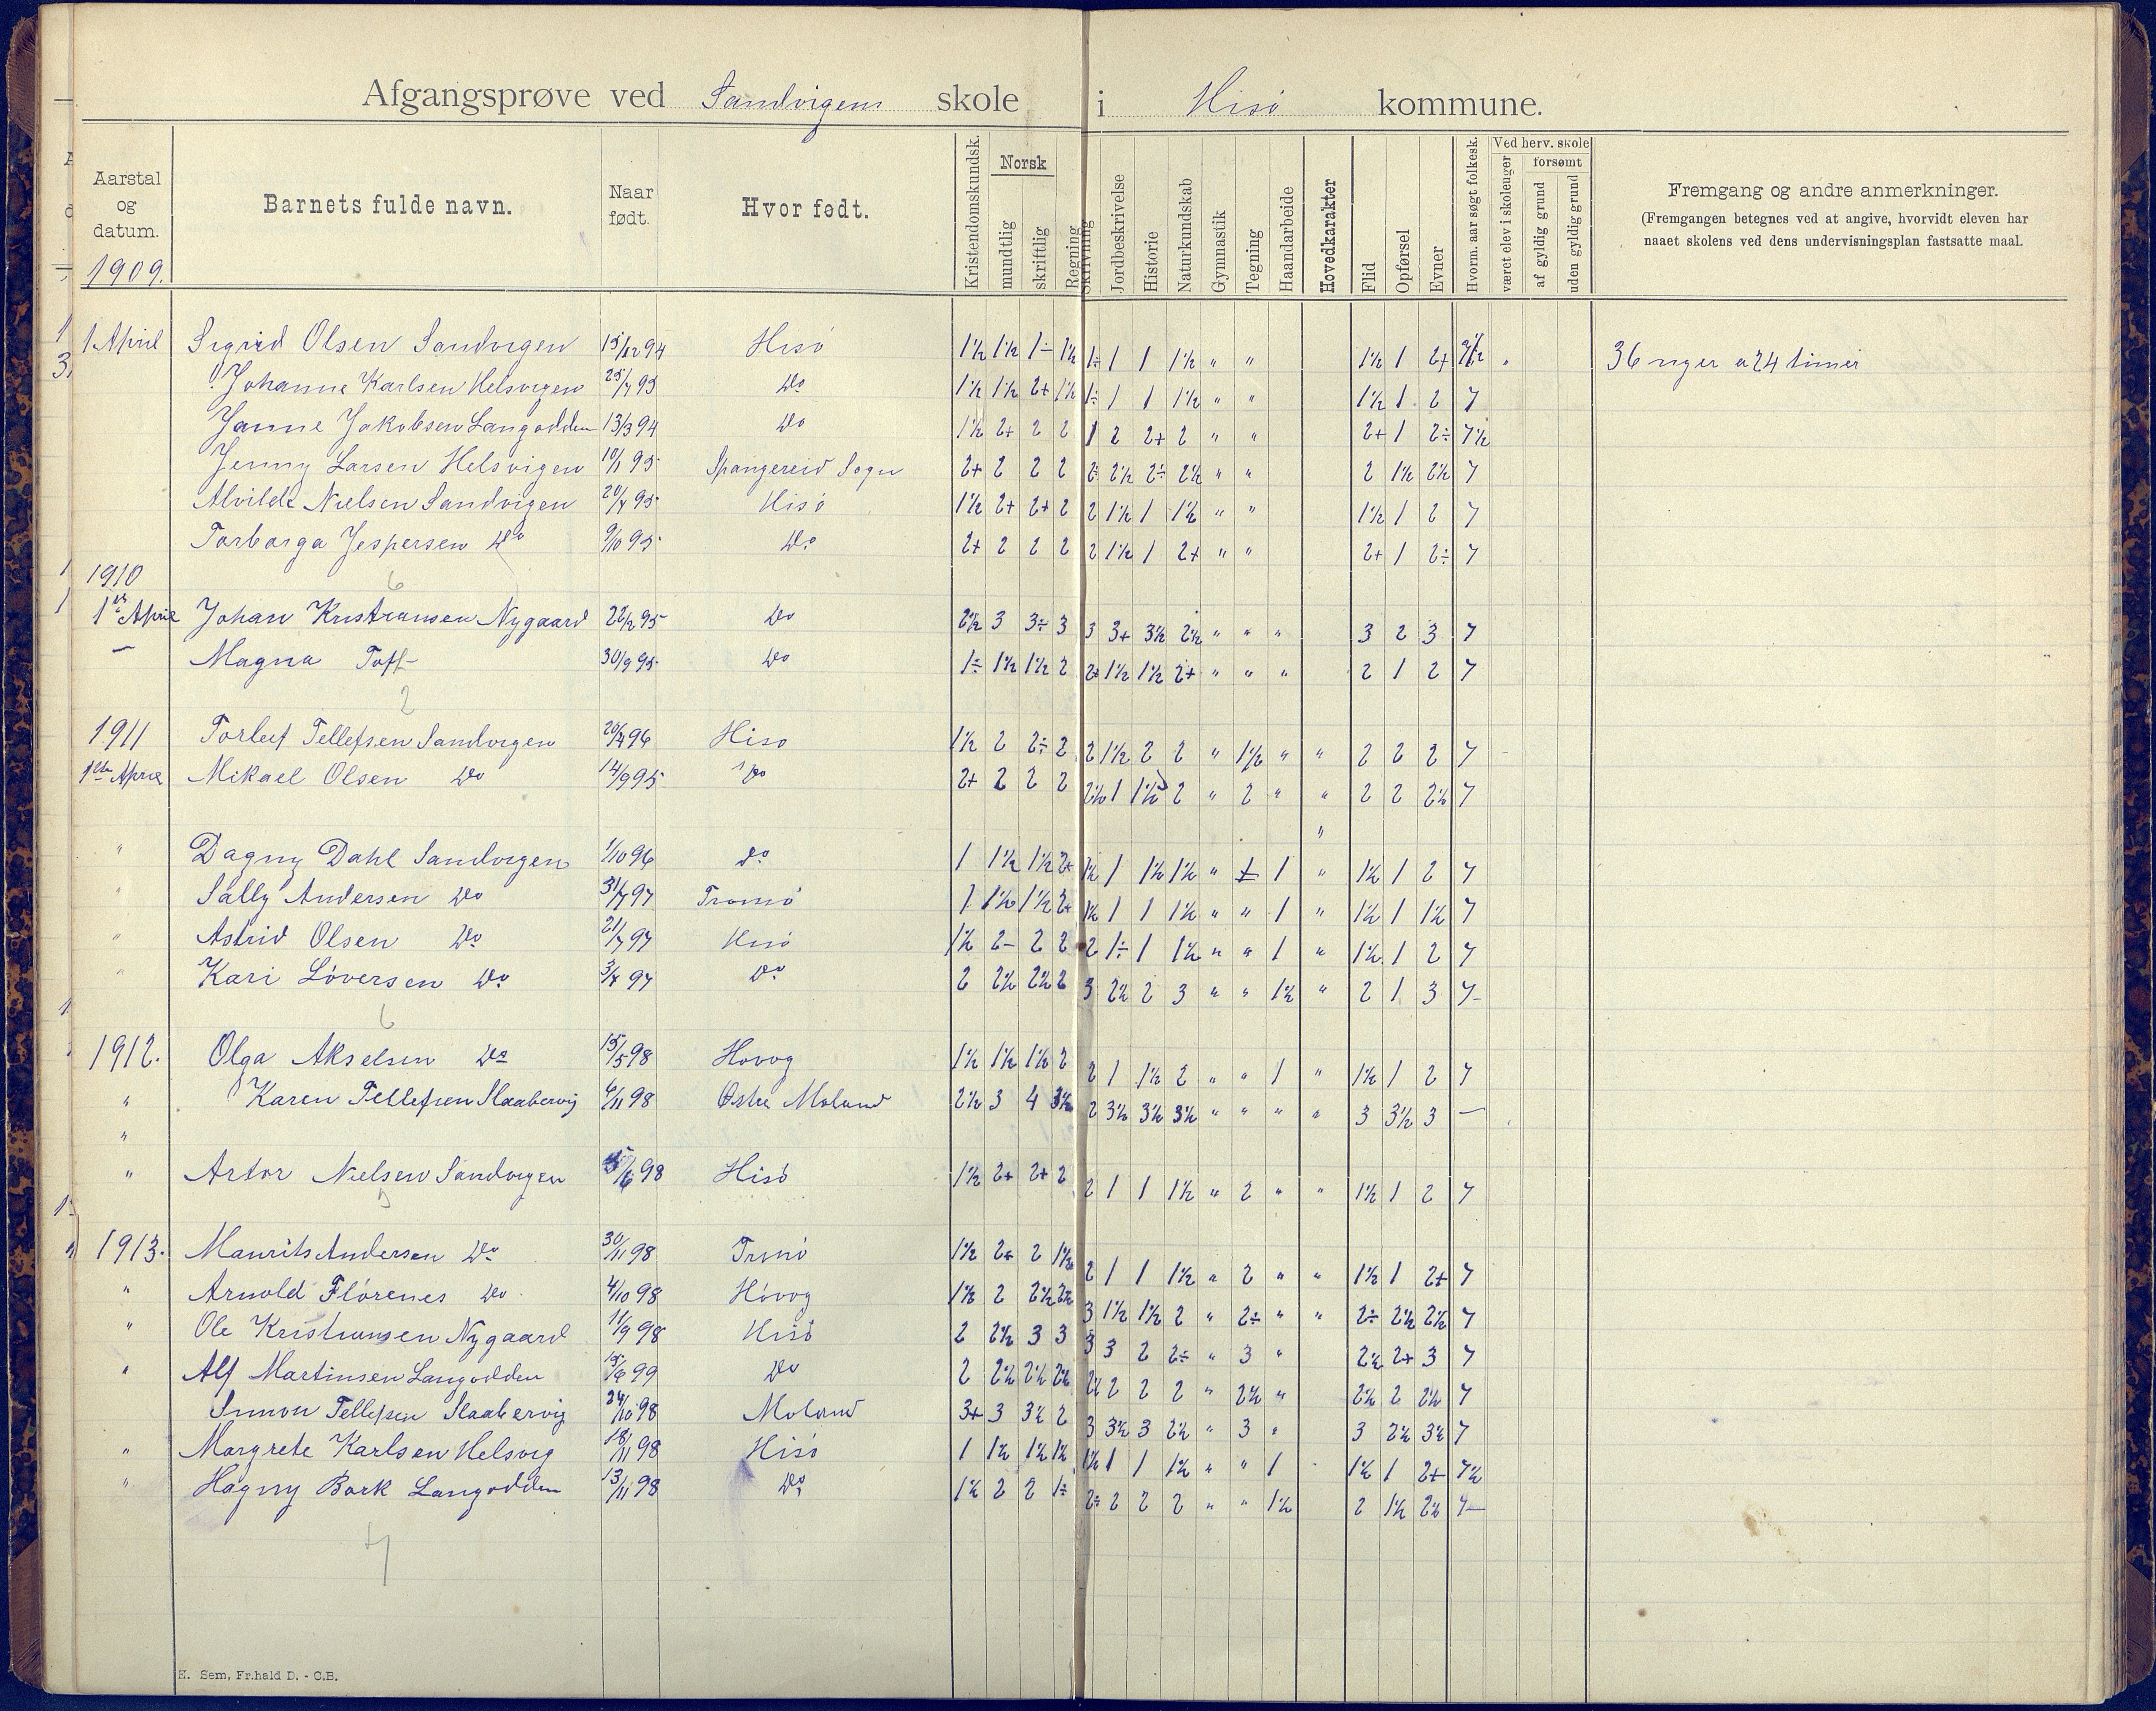 Afgangsprøve ved Sandvigens skole i Hisø kommune.
Aarstal og datum. Barnets fulde navn. Naar født. Hvor født. Kristendomskundsk. Norsk mundtlig skriftlig Regning Skrivning Jordbeskrivelse Historie Naturkundskab Gymnastik Tegning Haandarbeide Hovedkarakter Flid Opførsel Evner Hvorm. aar søgt folkesk. Ved herv. skole været elev i skoleuger forsømt af gyldig grund uden gyldig grund Fremgang og andre anmerkninger.
(Fremgangen betegnes ved at angive, hvorvidt eleven har
naaet skolens ved dens undervisningsplan fastsatte maal.
1909.
1 April Sigrid Olsen Sandvigen 15/12 94 Hisø 1½ 1½ 1÷ 1½ 1÷ 1 1 1½ " " 1½ 1 2+ 7½ " 36 uger a 24 timer
Johanne Karlsen Helsvigen 25/7 95 Do 1½ 1½ 2+ 1½ 1÷ 1 1 1½ " " 1½ 1 2 7
Janne Jakobsen Langodden 13/3 94 Do 1½ 2+ 2 2 1 2 2+ 2 " " 2+ 1 2÷ 7½
Jenny Larsen Helsvigen 10/1 95 Spangereid Sogn 2+ 2 2 2 2÷ 2½ 2÷ 2½ " " 2 1½ 2½ 7
Alvilde Nielsen Sandvigen 20/7 95 Hisø 1½ 2+ 2+ 2 2 1½ 1 1½ " " 1½ 1 2 7
Torborga Jespersen Do 9/10 95 Do 2+ 2 2 2 2 1½ 1 2+ " " 2+ 1 2÷ 7
6
1910
1ste April Johan Kristiansen Nygaard 22/12 95 Do 2½ 3 3÷ 3 3 3+ 3½ 2½ " " " 3 2 3 7
— Magna Toft 30/9 95 Do 1÷ 1½ 1½ 2 2+ 1½ 1½ 2+ " " " 2 1 2 7
2
1911 Torleif Tellefsen Sandvigen 20/4 96 Hisø 1½ 2 2÷ 2 2 1½ 2 2 " 1½ " " 2 2 2 7
1ste April Mikael Olsen Do 14/9 95 Do 2+ 2 2 2 2½ 1 1½ 2 " 2 " " 2 2 2½ 7
"
" Dagny Dahl Sandvigen 1/10 96 Do 1 1½ 1½ 2+ 1½ 1 1½ 1½ " 1 " 1½ 1 2 7
" Sally Andersen Do 31/7 97 Tromø 1 1½ 1½ 2+ 1½ 1 1 1½ " " 1 " 1½ 1 1½ 7
" Astrid Olsen Do 21/7 97 Hisø 1½ 2- 2 2 2 1÷ 1 1½ " " 1 " 1½ 1 2 7
" Kari Løversen Do 3/7 97 Do 2 2½ 2½ 2 3 2½ 2 3 " " 1½ " 2 1 3 7
6
1912. Olga Akselsen Do 15/5 98 Høvog 1½ 1½ 1½ 2 2 1 1½ 2 " " 1 " 1½ 1 2 7
" Karen Tellefsen Slaabervig 6/11 98 Østre Moland 2½ 3 4 3½ 2 3½ 3½ 3½ " " " " 3 3½ 3 —
"
" Artor Nielsen Sandvigen 5/6 98 Hisø 1½ 2+ 2+ 2 2 1 1 1½ " 2 " " 1½ 1 2 7
3
1913. Maurits Andersen Do 30/11 98 Tromø 1½ 2+ 2 1½ 2 1 1 1½ " 2 " " 1½ 1 2+ 7
" Arnold Flørenes Do 4/10 98 Høvog 1½ 2 2½ 2½ 3 1½ 1½ 2 " 2÷ " " 2÷ 2½ 2½ 7
" Ole Kristiansen Nygaard 11/9 98 Hisø 2 2½ 3 3 3 3 2 2÷ " 3 " 2½ 2+ 3 7
" Alf Martinsen Langodden 15/6 99 Do 2 2½ 2½ 2½ 2½ 2 2 2 " 2½ " 2½ 2 2½ 7
Simon Tellefsen Slaabervig 24/10 98 Moland 3+ 3 3½ 2 3 3½ 3 2½ " 3 " 3 2½ 3½ 7
" Margrete Karlsen Helsvig 18/11 98 Hisø 1 1½ 1½ 1½ 1½ 1 1 1½ " " 1 1½ 1 2+ 7½
" Hagny Bork Langodden 13/11 98 Do 1½ 2 2 1÷ 2÷ 2 2 2 " " 1½ 2 1½ 2½ 7
7
E. Sem, Fr.hald D. - C.B.